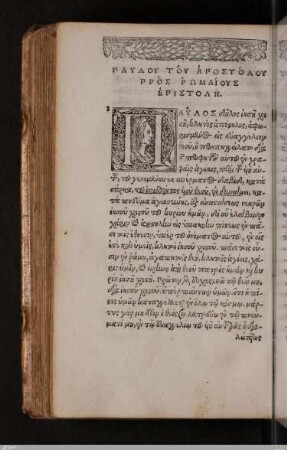 ΠΑΥΛΟΥ ΤΟΥ ΑΠΟΣΤΟΛΟΥ
ΠΡΟΣ ΡΩΜΑΙΟΥΣ
ΕΠΙΣΤΟΛΗ.
ΠΑΥΛΟΣ δοῦλος ἰησοῦ χριστοῦ
κλητὸς ἀπόστολος, ἀφω
ρισμένος εἰς εὐαγγέλιον
θεοῦ, ὃ προεπηγγείλατο διὰ
τῶν προφητῶν αὐτοῦ ἐν γρα
φαῖς ἁγίαις, περὶ τοῦ υἱοῦ αὐ
τοῦ, τοῦ γενομένου ἐκ σπέρματος δαβίδ, κατὰ
σάρκα, τοῦ ὁρισθέντος υἱοῦ θεοῦ, ἐν δυνάμει, κα
τὰ πνεῦμα ἁγιωσύνης, ἐξ ἀναστάσεως νεκρῶν
ἰησοῦ χριστοῦ τοῦ κυρίου ἡμῶν, δι' οὗ ἐλάβομεν
χάριν καὶ ἀποστολὴν εἰς ὑπακοὴν πίστεως ἐν πᾶσι
τοῖς ἔθνεσιν, ὑπὲρ τοῦ ὀνόματος αὐτοῦ, ἐν οἷς
ἐστὲ καὶ ὑμεῖς, κλητοὶ ἰησοῦ χριστοῦ, πᾶσι τοῖς οὖ
σιν ἐν ῥώμῃ, ἀγαπητοῖς θεοῦ, κλητοῖς ἁγίοις, χάρις
ὑμῖν, καὶ εἰρήνη ἀπὸ θεοῦ πατρὸς ἡμῶν καὶ κυ
ρίου ἰησοῦ χριστοῦ. Πρῶτον μὲν, εὐχαριστῶ τῷ θεῷ μου
διὰ ἰησοῦ χριστοῦ, ὑπὲρ πάντων ὑμῶν, ὅτι ἡ πί
στις ὑμῶν καταγγέλλεται ἐν ὅλῳ τῷ κόσμῳ. μάρ
τυς γάρ μου ἐστὶν ὁ θεὸς, ᾧ λατρεύω ἐν τῷ πνεύ
ματί μου, ἐν τῷ εὐαγγελίῳ τοῦ υἱοῦ αὐτοῦ, ὡς ἀδια
λείπτως